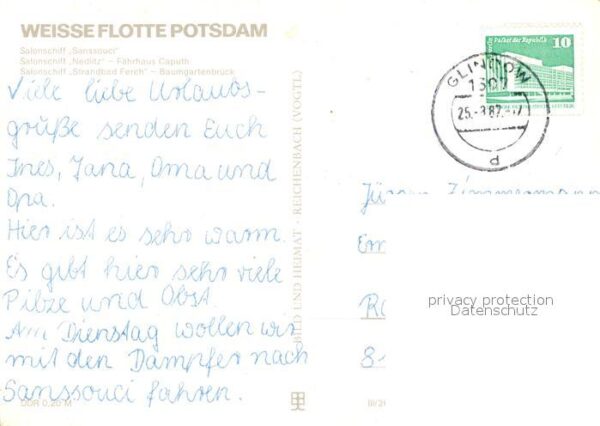 WEISSE FLOTTE POTSDAM
Salonschiff „Sanssouci"
Salonschiff „Nedlitz" – Fährhaus Caputh
Salonschiff „Strandbad Ferch" – Baumgartenbrück
Viele liebe Urlaubs-
grüße senden Euch
Ines, Jana, Oma und
Opa.
Hier ist es sehr warm.
Es gibt hier sehr viele
Pilze und Obst.
Am Dienstag wollen wir
mit den Dampfer nach
Sanssouci fahren.
DDR 0,20 M
BILD UND HEIMAT · REICHENBACH (VOGTL)
Palast der Republik
10
GLINDOW
25.-8.82.-17
d
Jürgen Zimmermann
privacy protection
Datenschutz